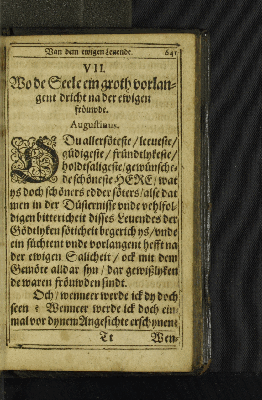 Van dem ewigen Leuende. 641
VII.
Wo de Seele ein groth vorlan-
gent dricht na der ewigen
fröuwde.
Augustinus.
O Du allersöteste / leeueste /
güdigeste / fründtlykeste /
holdtsaligeste / gewünsche-
de schöneste HERE / wat
ys doch schöners edder söters / alse dat
men in der Düsternisse vnde vehlfol-
digen bittericheit disses Leuendes der
Gödtlyken söticheit begerich ys / vnde
ein süchtent vnde vorlangent hefft na
der ewigen Salicheit / ock mit dem
Gemöte alldar syn / dar gewißlyken
de waren fröuwden sindt.
Och / wenneer werde ick dy doch
seen? Wenneer werde ick doch ein-
mal vor dynem Angesichte erschynen?
Tt Wen-